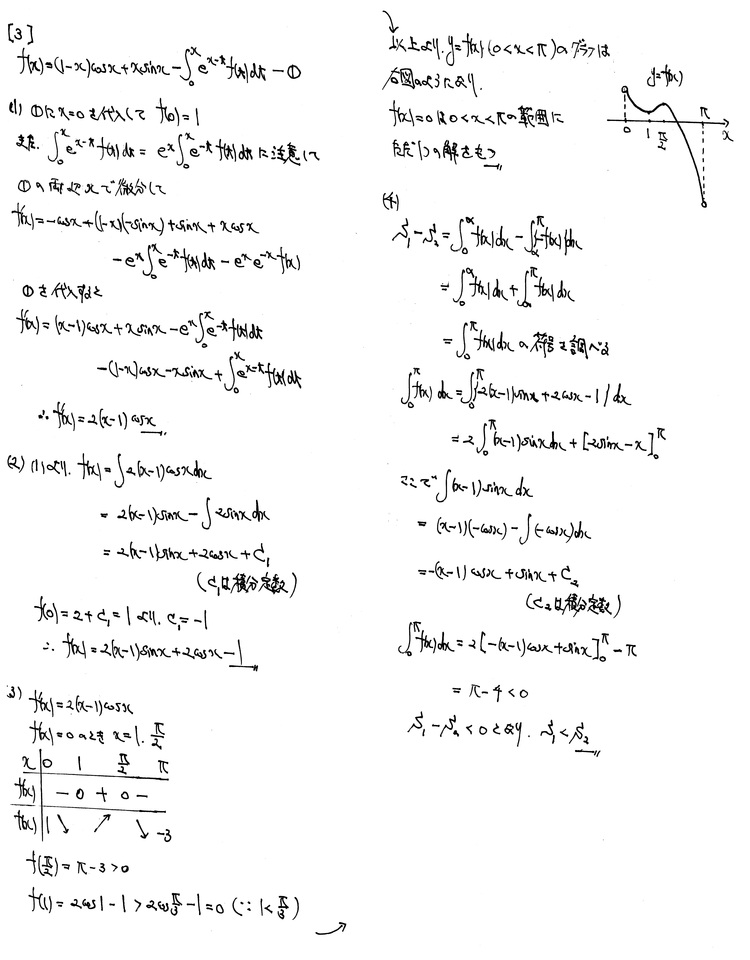 [3]
f(x)=(1-x)cosx+xsinx-∫₀ˣe^{x-t}f(t)dt -①
(1) ①にx=0を代入して f(0)=1
また、∫₀ˣe^{x-t}f(t)dt=e^x∫₀ˣe^{-t}f(t)dtに注意して
①の両辺xで微分して
f'(x)=-cosx+(1-x)(-sinx)+sinx+xcosx
-e^x∫₀ˣe^{-t}f(t)dt-e^x e^{-x}f(x)
①を代入すると
f'(x)=(x-1)cosx+xsinx-e^x∫₀ˣe^{-t}f(t)dt
-(1-x)cosx-xsinx+∫₀ˣe^{x-t}f(t)dt
∴f'(x)=2(x-1)cosx
(2) (1)より、f(x)=∫2(x-1)cosxdx
=2(x-1)sinx-∫2sinxdx
=2(x-1)sinx+2cosx+C₁
(C₁は積分定数)
f(0)=2+C₁=1より、C₁=-1
∴f(x)=2(x-1)sinx+2cosx-1
3) f'(x)=2(x-1)cosx
f'(x)=0のとき x=1, π/2
x 0 1 π/2 π
f'(x) - 0 + 0 -
f(x) 1 ↘ ↗ ↘ -3
f(π/2)=π-3>0
f(1)=2cos1-1>2cosπ/3-1=0 (∵1<π/3)
以上より、y=f(x) (0<x<π)のグラフは
右図のようになり、
f(x)=0は0<x<πの範囲に
ただ1つの解をもつ
y=f(x)
0 1 π/2 π x
(4)
S₁-S₂=∫₀^αf(x)dx-∫_α^π{-f(x)}dx
=∫₀^αf(x)dx+∫_α^πf(x)dx
=∫₀^πf(x)dxの符号を調べる
∫₀^πf(x)dx=∫₀^π{2(x-1)sinx+2cosx-1}dx
=2∫₀^π(x-1)sinxdx+[2sinx-x]₀^π
ここで∫(x-1)sinxdx
=(x-1)(-cosx)-∫(-cosx)dx
=-(x-1)cosx+sinx+C₂
(C₂は積分定数)
∫₀^πf(x)dx=2[-(x-1)cosx+sinx]₀^π-π
=π-4<0
S₁-S₂<0となり、S₁<S₂